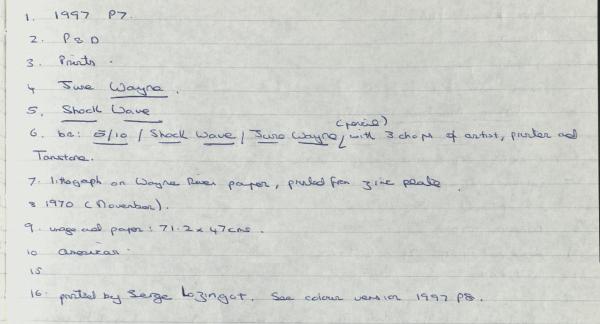 1. 1997 P7.
2. P & D
3. Prints.
4 June Wayne.
5. Shock Wave
6. be: 5/10 / Shock Wave / June Wayne (pencil), with 3 chops of artist, printer and
Tamstone.
7. lithograph on Wayne River paper, printed from zinc plate.
8 1970 (November).
9. image and paper: 71.2 x 47 cms.
10 American.
15
16. printed by Serge Lozingot. See colour version 1997 P8.